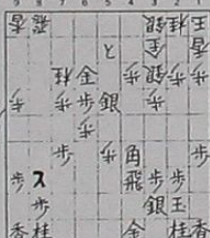 9 8 7 6 5 4 3 2 1
香 飛 銀 桂 王
と 金 香
桂 金 歩 銀 歩 歩
歩 歩 歩 銀 歩
歩
歩 歩 角 歩
歩 ス 飛 歩 歩
歩 銀 玉
香 桂 金 桂 香